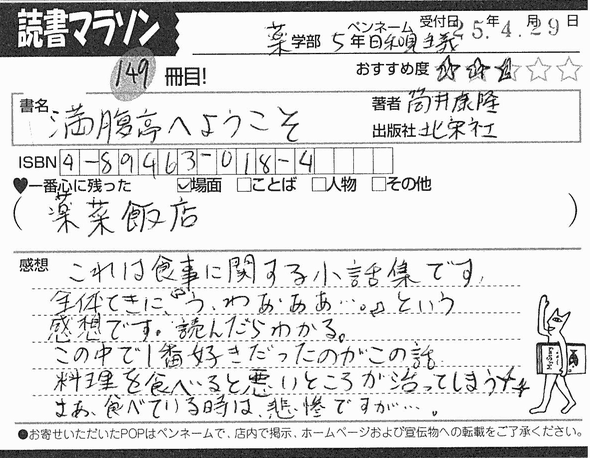 読書マラソン
薬学部 5年 ペンネーム 日和見主義 受付日 25.4.月29日
149冊目!
おすすめ度 ☆☆☆☆☆
書名 満腹亭へようこそ
著者 筒井康隆
出版社 北宋社
ISBN 4-89463-018-4
♥一番心に残った ☑場面 □ことば □人物 □その他
(薬菜飯店)
感想 これは食事に関する小話集です。
全体てきに、"う、わあぁああ…。"という
感想です。読んだらわかる。
この中で1番好きだったのがこの話
料理を食べると悪いところが治ってしまう
まあ、食べている時は、悲惨ですが…。
●お寄せいただいたPOPはペンネームで、店内で掲示、ホームページおよび宣伝物への転載をご了承ください。